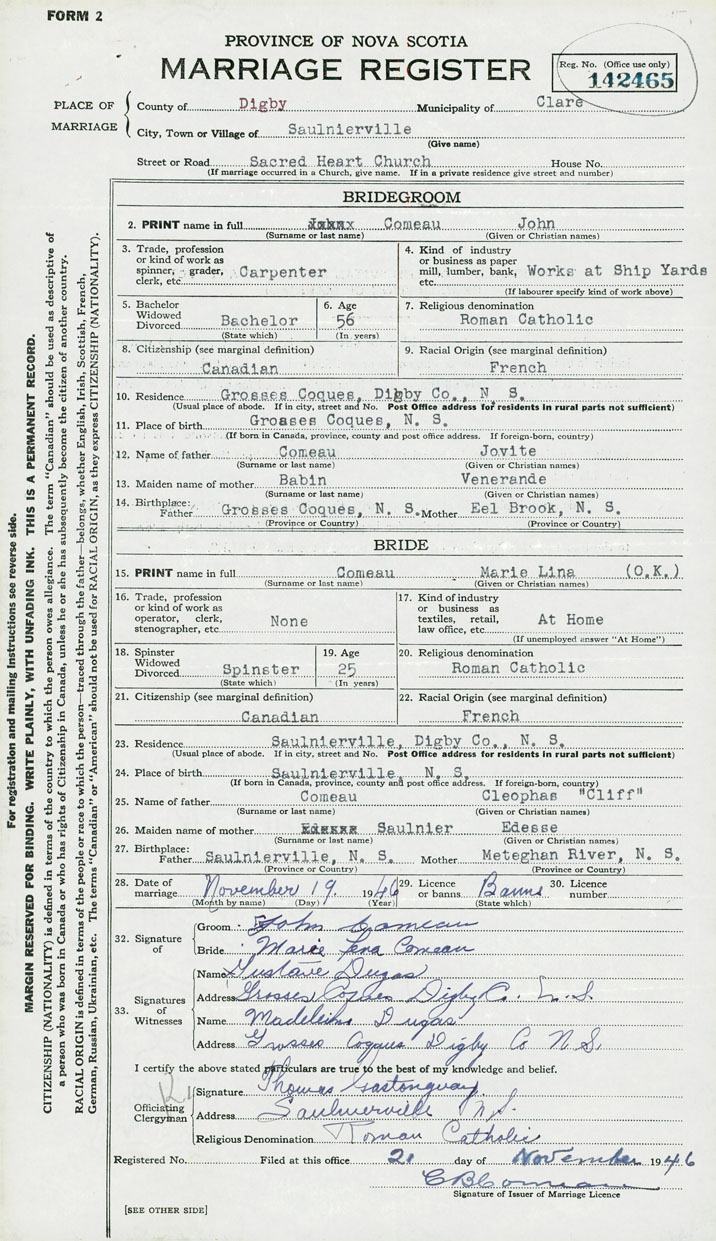 FORM 2
PROVINCE OF NOVA SCOTIA
MARRIAGE REGISTER
Reg. No. (Office use only)
142465
PLACE OF MARRIAGE
County of Digby Municipality of Clare
City, Town or Village of Saulnierville
(Give name)
Street or Road Sacred Heart Church House No.
(If marriage occurred in a Church, give name. If in a private residence give street and number)
BRIDEGROOM
2. PRINT name in full Comeau John
(Surname or last name) (Given or Christian names)
3. Trade, profession or kind of work as spinner, grader, clerk, etc. Carpenter
4. Kind of industry or business as paper mill, lumber, bank, etc. Works at Ship Yards
(If labourer specify kind of work above)
5. Bachelor Widowed Divorced Bachelor
(State which)
6. Age 56
(In years)
7. Religious denomination
Roman Catholic
8. Citizenship (see marginal definition)
Canadian
9. Racial Origin (see marginal definition)
French
10. Residence Grosses Coques, Digby Co., N. S.
(Usual place of abode. If in city, street and No. Post Office address for residents in rural parts not sufficient)
11. Place of birth Grosses Coques, N. S.
(If born in Canada, province, county and post office address. If foreign-born, country)
12. Name of father Comeau Jovite
(Surname or last name) (Given or Christian names)
13. Maiden name of mother Babin Venerande
(Surname or last name) (Given or Christian names)
14. Birthplace: Father Grosses Coques, N. S. Mother Eel Brook, N. S.
(Province or Country) (Province or Country)
BRIDE
15. PRINT name in full Comeau Marie Lina (O.K.)
(Surname or last name) (Given or Christian names)
16. Trade, profession or kind of work as operator, clerk, stenographer, etc. None
17. Kind of industry or business as textiles, retail, law office, etc. At Home
(If unemployed answer "At Home")
18. Spinster Widowed Divorced Spinster
(State which)
19. Age 25
(In years)
20. Religious denomination
Roman Catholic
21. Citizenship (see marginal definition)
Canadian
22. Racial Origin (see marginal definition)
French
23. Residence Saulnierville, Digby Co., N. S.
(Usual place of abode. If in city, street and No. Post Office address for residents in rural parts not sufficient)
24. Place of birth Saulnierville, N. S.
(If born in Canada, province, county and post office address. If foreign-born, country)
25. Name of father Comeau Cleophas "Cliff"
(Surname or last name) (Given or Christian names)
26. Maiden name of mother Saulnier Edesse
(Surname or last name) (Given or Christian names)
27. Birthplace: Father Saulnierville, N. S. Mother Meteghan River, N. S.
(Province or Country) (Province or Country)
28. Date of marriage November 19. 1946
(Month by name) (Day) (Year)
29. Licence or banns Banns
(State which)
30. Licence number
32. Signature of
Groom John Comeau
Bride Marie Lena Comeau
33. Signatures of Witnesses
Name Gustave Dugas
Address Grosses Coques Digby Co. N.S.
Name Madeleine Dugas
Address Grosses Coques Digby Co N.S.
I certify the above stated particulars are true to the best of my knowledge and belief.
Officiating Clergyman
Signature Thomas Gastonguay
Address Saulnierville N.S.
Religious Denomination Roman Catholic
Registered No. Filed at this office 21 day of November 1946
Signature of Issuer of Marriage Licence
[SEE OTHER SIDE]
For registration and mailing instructions see reverse side.
MARGIN RESERVED FOR BINDING. WRITE PLAINLY, WITH UNFADING INK. THIS IS A PERMANENT RECORD.
CITIZENSHIP (NATIONALITY) is defined in terms of the country to which the person owes allegiance. The term "Canadian" should be used as descriptive of
a person who was born in Canada or who has rights of Citizenship in Canada, unless he or she has subsequently become the citizen of another country.
RACIAL ORIGIN is defined in terms of the people or race to which the person—traced through the father—belongs, whether English, Irish, Scottish, French,
German, Russian, Ukrainian, etc. The terms "Canadian" or "American" should not be used for RACIAL ORIGIN, as they express CITIZENSHIP (NATIONALITY).